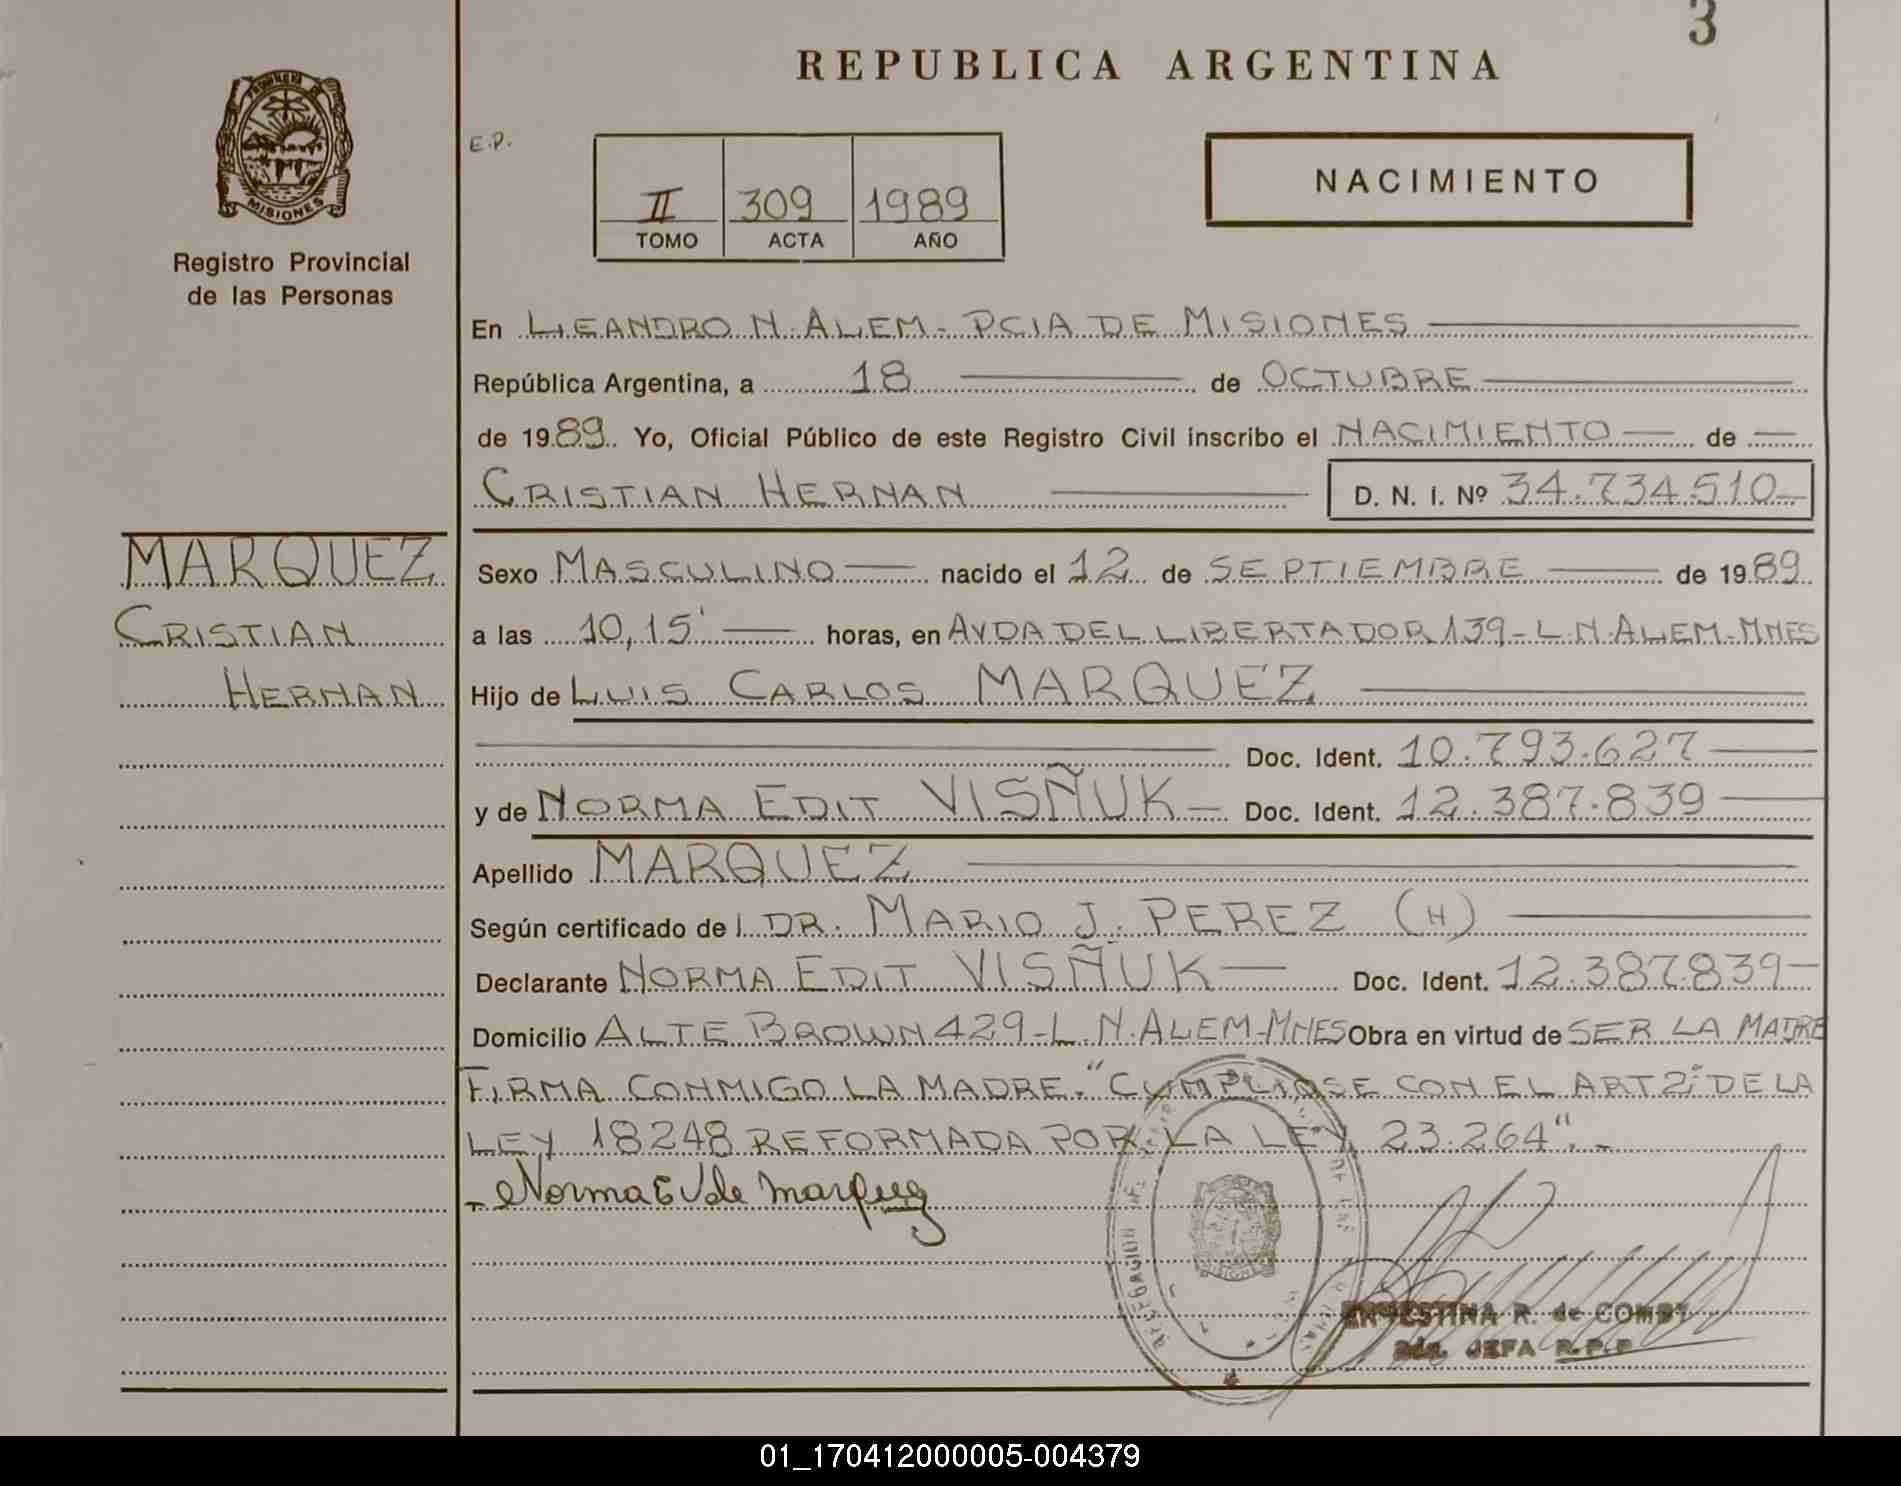 3
REPUBLICA ARGENTINA
PROVINCIA DE
MISIONES
Registro Provincial
de las Personas
E.P.
II 309 1989
TOMO ACTA AÑO
NACIMIENTO
En LEANDRO N. ALEM - PCIA DE MISIONES
República Argentina, a 18 de OCTUBRE
de 1989. Yo, Oficial Público de este Registro Civil inscribo el NACIMIENTO de
CRISTIAN HERNAN D. N. I. Nº 34.734.510
MARQUEZ
CRISTIAN
HERNAN
Sexo MASCULINO nacido el 12 de SEPTIEMBRE de 1989
a las 10,15' horas, en AVDA DEL LIBERTADOR 139 - L.N. ALEM - MNES
Hijo de LUIS CARLOS MARQUEZ
Doc. Ident. 10.793.627
y de NORMA EDIT VISÑUK - Doc. Ident. 12.387.839
Apellido MARQUEZ
Según certificado de l DR. MARIO J. PEREZ (H)
Declarante NORMA EDIT VISÑUK - Doc. Ident. 12.387.839
Domicilio ALTE BROWN 429 - L.N. ALEM - MNES Obra en virtud de SER LA MADRE
FIRMA CONMIGO LA MADRE. "CUMPLIOSE CON EL ART 2º DE LA
LEY 18248 REFORMADA POR LA LEY 23.264". -
- Norma E V de Marquez
MISIONES
ERNESTINA R. de
JEFA R.P.P.
01_170412000005-004379